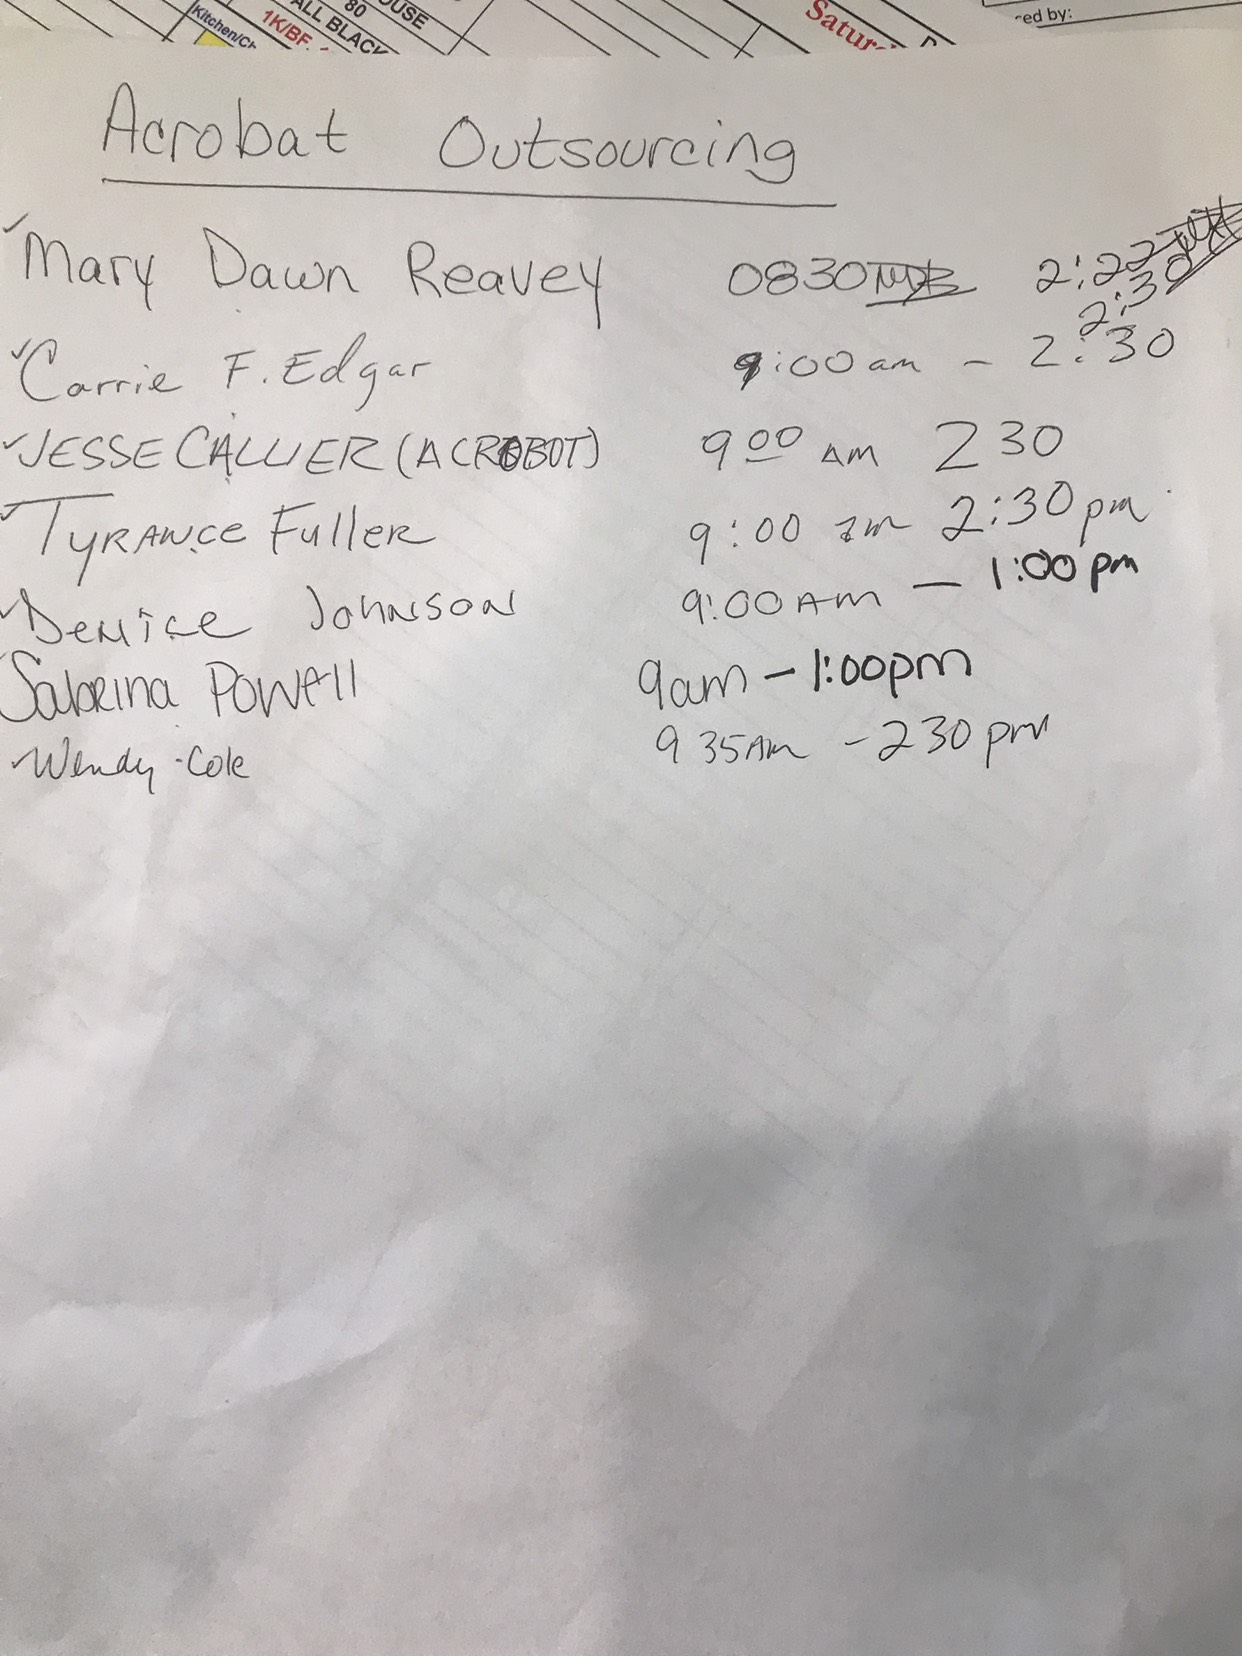 OUSE
80
ALL BLACK
1K/BF
Kitchen/Ch
Satur
ed by:
Acrobat Outsourcing
✓Mary Dawn Reavey 0830 2:22
2:30
✓Carrie F. Edgar 9:00 am - 2:30
✓JESSE CALLIER (ACROBOT) 9 00 AM 2 30
✓TYRANCE FulleR 9:00 am 2:30 pm
✓Denice Johnson 9:00 AM - 1:00 pm
Sabrina Powell 9am - 1:00pm
✓Wendy Cole 9 35 Am - 2 30 pm